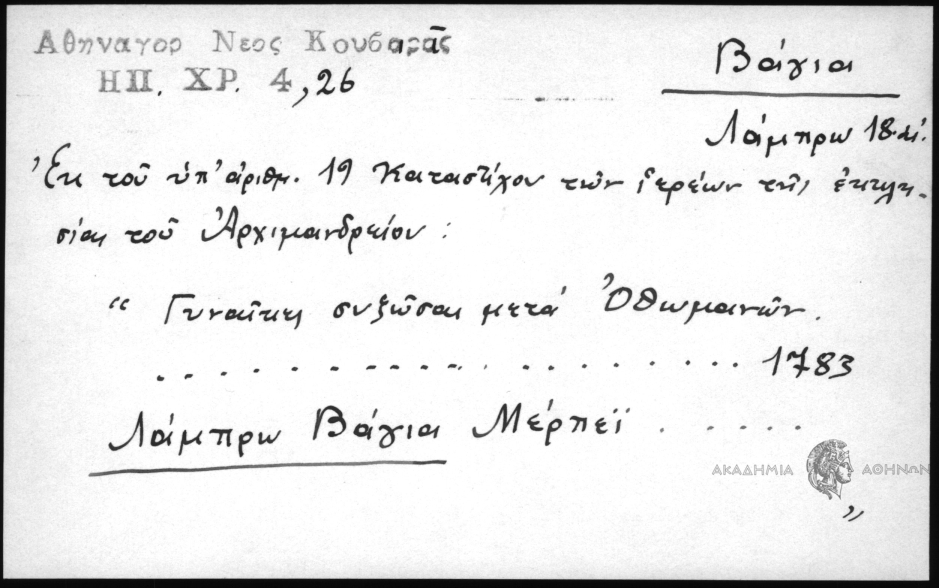 Αθηναγορ Νεος Κουβαρᾶς
ΗΠ. ΧΡ. 4, 26
Βάγια
Λάμπρω 18. αἰ.
Ἐκ τοῦ ὑπ' ἀριθμ. 19 Καταστίχου τῶν ἱερέων τῆς ἐκκλη-
σίας τοῦ Ἀρχιμανδρείου :
“ Γυναῖκες συζῶσαι μετά Ὀθωμανῶν.
. . . . . . . . . . . . . . . . . . . . 1783
Λάμπρω Βάγια Μέρπεϊ . . . . .
ΑΚΑΔΗΜΙΑ ΑΘΗΝΩΝ
”